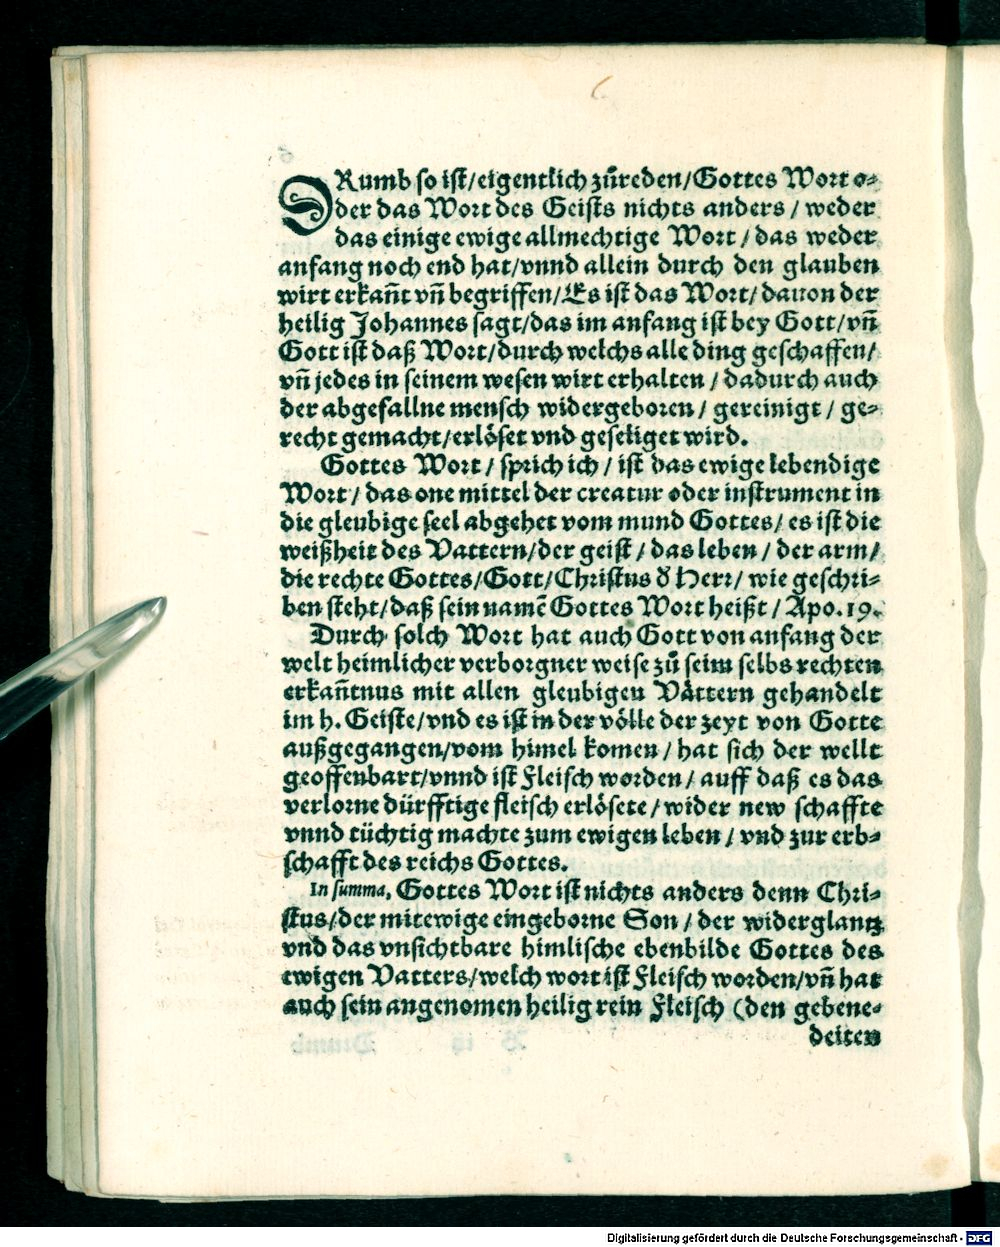 DRumb so ist/eigentlich zůreden/Gottes Wort o=
der das Wort des Geists nichts anders/ weder
das einige ewige allmechtige Wort/ das weder
anfang noch end hat/vnnd allein durch den glauben
wirt erkañt vñ begriffen/Es ist das Wort/dauon der
heilig Johannes sagt/das im anfang ist bey Gott/vñ
Gott ist daß Wort/durch welchs alle ding geschaffen/
vñ jedes in seinem wesen wirt erhalten/ dadurch auch
der abgefallne mensch widergeboren/ gereinigt/ ge=
recht gemacht/erlöset vnd geseliget wird.
Gottes Wort/ sprich ich/ ist das ewige lebendige
Wort/ das one mittel der creatur oder instrument in
die gleubige seel abgehet vom mund Gottes/ es ist die
weißheit des Vattern/der geist/ das leben/ der arm/
die rechte Gottes/Gott/Christus ď Herr/ wie geschri=
ben steht/daß sein namē Gottes Wort heißt/ Apo. 19.
Durch solch Wort hat auch Gott von anfang der
welt heimlicher verborgner weise zů seim selbs rechten
erkañtnus mit allen gleubigen Vättern gehandelt
im h. Geiste/vnd es ist in der völle der zeyt von Gotte
außgegangen/vom himel komen/ hat sich der wellt
geoffenbart/vnnd ist Fleisch worden/ auff daß es das
verlorne dürfftige fleisch erlösete/ wider new schaffte
vnnd tüchtig machte zum ewigen leben/ vnd zur erb=
schafft des reichs Gottes.
In summa, Gottes Wort ist nichts anders denn Chri=
stus/der mitewige eingeborne Son/ der widerglantz
vnd das vnsichtbare himlische ebenbilde Gottes des
ewigen Vatters/welch wort ist Fleisch worden/vñ hat
auch sein angenomen heilig rein Fleisch (den gebene=
deiten
Digitalisierung gefördert durch die Deutsche Forschungsgemeinschaft - DFG